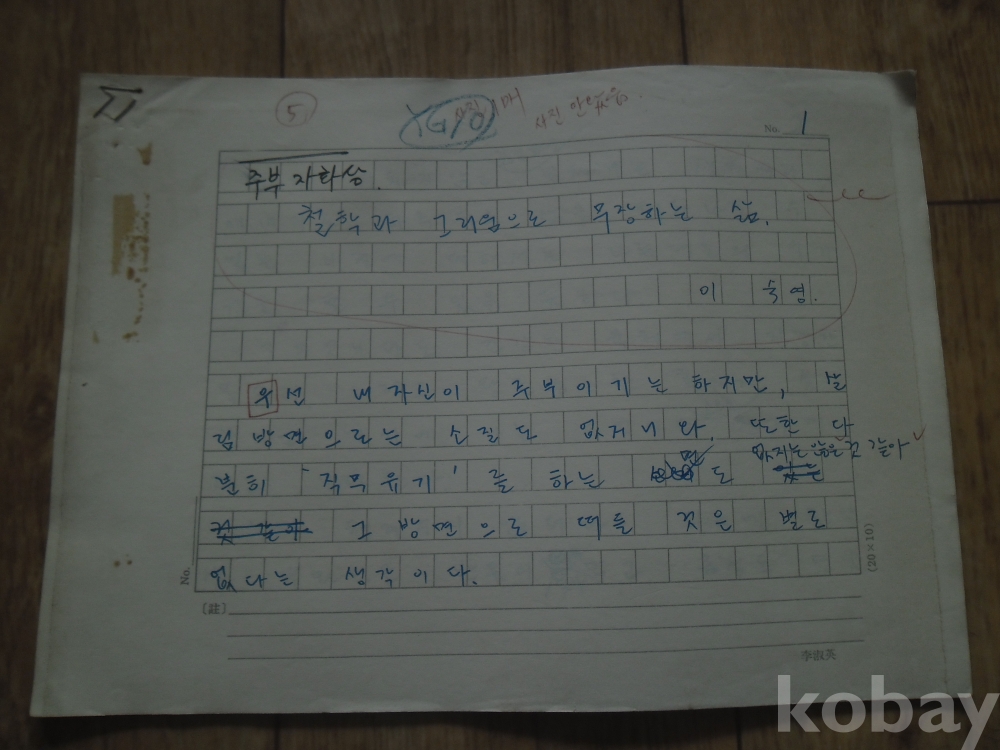 5
사진 1매
사진 안 왔음.
No. 1
주부 자화상.
철학과 그리움으로 무장하는 삶.
이 숙영.
우선 내 자신이 주부이기는 하지만, 살
림 방면으로는 소질도 없거니와. 또한 다
없지는 않은 것 같아
분히 '직무유기'를 하는 면도
그 방면으로 떠들 것은 별로
없다는 생각이다.
No.
(20×10)
〔註〕
李淑英
kobay